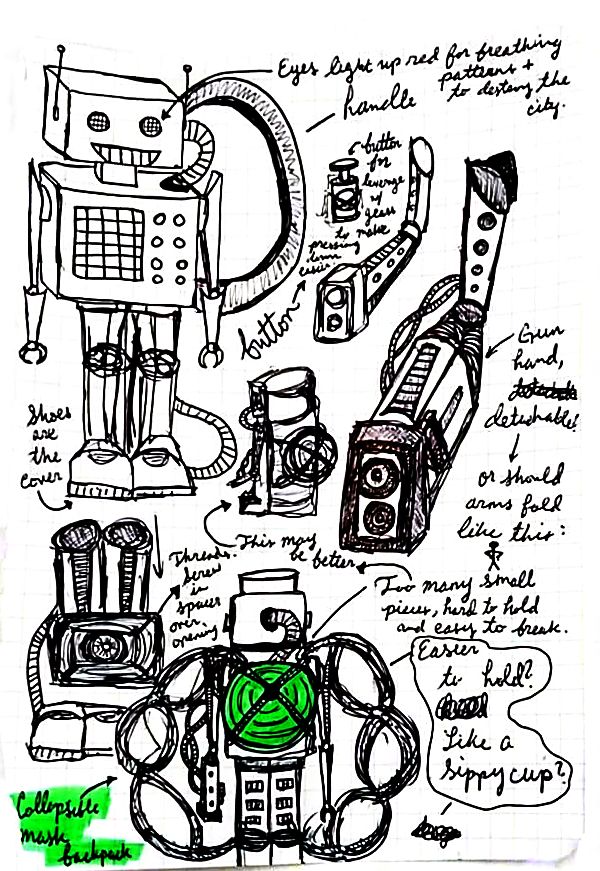 Eyes light up red for breathing
patterns +
to destroy the
city.
handle
button
for
leverage
w/
gears
to make
pressing
down
easier.
button
Gun
hand,
detachable!
or should
arms fold
like this:
Shoes
are
the
cover
This may
be better
Threads.
Screw
in
spacer
over
opening
Too many small
pieces, hard to hold
and easy to break.
Easier
to hold?
Like a
Sippy cup?
Collapsible
mask
backpack